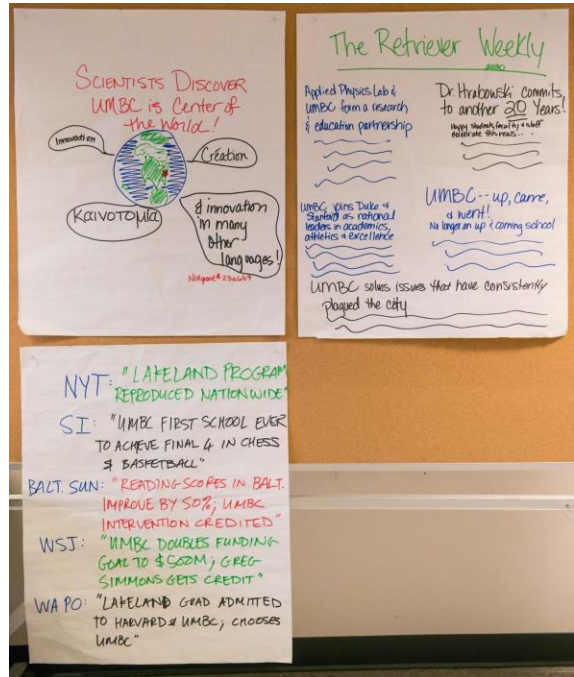 SCIENTISTS DISCOVER
UMBC is Center of
the World!
Innovation
Création
Καινοτομία
& innovation
in many
other
languages!
The Retriever Weekly
2030
Applied Physics Lab &
UMBC form a research
& education partnership
Dr. Hrabowski commits
to another 20 Years!
Happy students, faculty & staff
celebrate this news...
UMBC joins Duke &
Stanford as national
leaders in academics,
athletics & excellence
UMBC -- up, came,
& went!
No longer an up & coming school
UMBC solves issues that have consistently
plagued the city
NYT: "LAKELAND PROGRAM
REPRODUCED NATIONWIDE"
SI: "UMBC FIRST SCHOOL EVER
TO ACHIEVE FINAL 4 IN CHESS
& BASKETBALL"
BALT. SUN: "READING SCORES IN BALT.
IMPROVE BY 50%; UMBC
INTERVENTION CREDITED"
WSJ: "UMBC DOUBLES FUNDING
GOAL TO $500M; GREG
SIMMONS GETS CREDIT"
WA PO: "LAKELAND GRAD ADMITTED
TO HARVARD & UMBC; CHOOSES
UMBC"